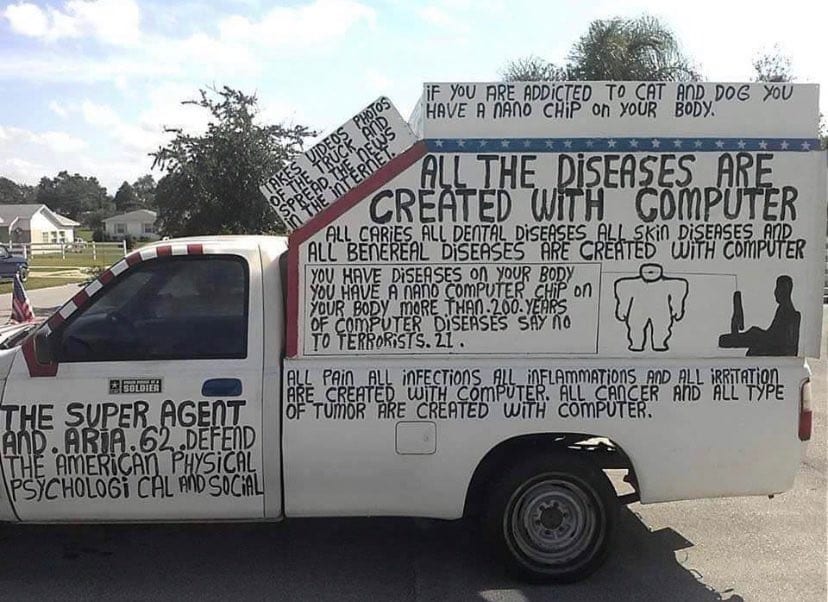 iF YOU ARE ADDICTED TO CAT AND DOG YOU
HAVE A NANO CHiP ON YOUR BODY.
TAKES VIDEOS PHOTOS
OF THE TRUCK AND
SPREAD THE NEWS
IN THE INTERNET.
ALL THE DiSEASES ARE
CREATED WiTH COMPUTER
ALL CARiES ALL DENTAL DiSEASES ALL SKiN DiSEASES AND
ALL BENEREAL DISEASES ARE CREATED WiTH COMPUTER
YOU HAVE DISEASES ON YOUR BODY
YOU HAVE A NANO COMPUTER CHiP ON
YOUR BODY MORE THAN.200.YEARS
OF COMPUTER DISEASES SAY NO
TO TERRORiSTS.21.
ALL PAiN ALL iNFECTiONS ALL iNFLAMMATiONS AND ALL iRRiTATiON
ARE CREATED WiTH COMPUTER. ALL CANCER AND ALL TYPE
OF TUMOR ARE CREATED WiTH COMPUTER.
SOLDIER
THE SUPER AGENT
AND.ARiA.62.DEFEND
THE AMERiCAN PHYSiCAL
PSYCHOLOGi CAL AND SOCiAL